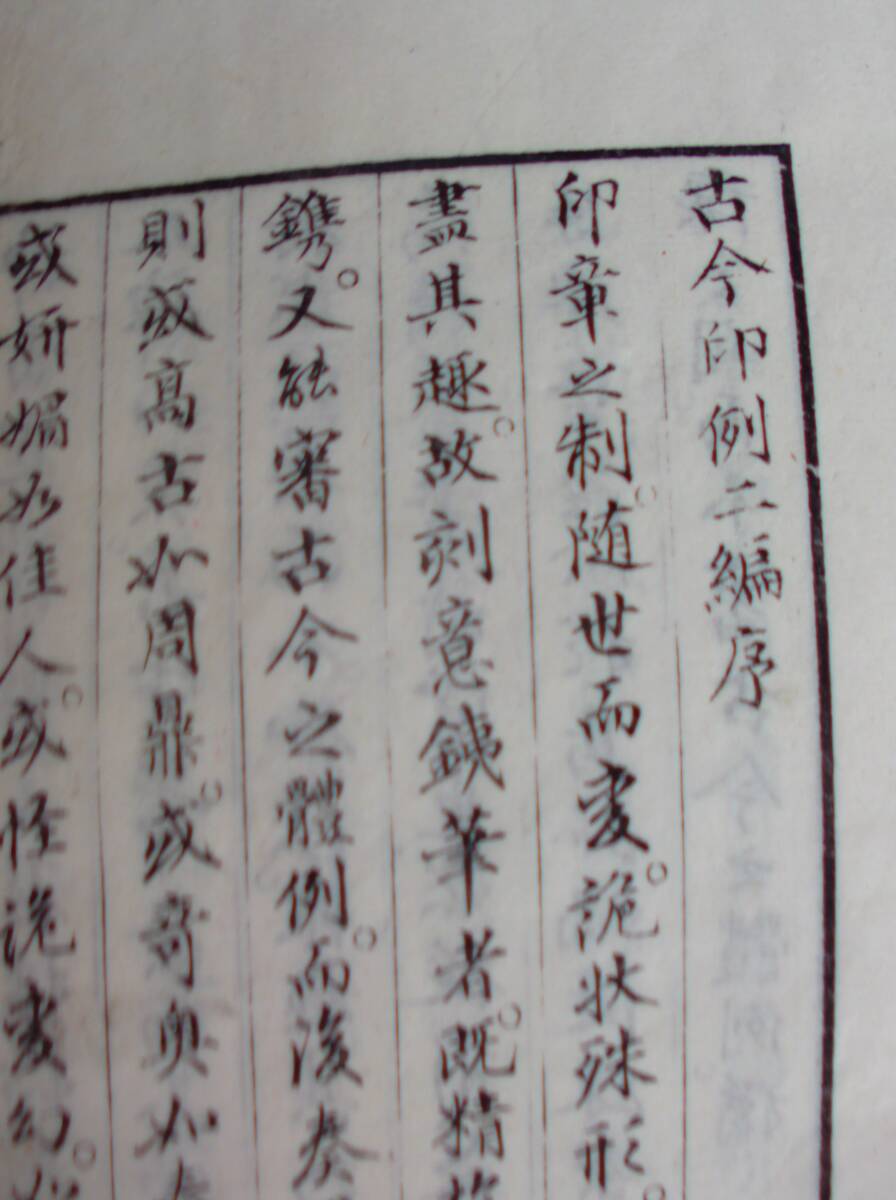 古今印例二編序
印章之制。随世而変。詭状殊形。
盡其趣。故刻意銕筆者。既精
鐫。又能審古今之體例。而後奏
則或高古如周鼎。或奇奥如
或妍媚如佳人。或怪詭変幻。